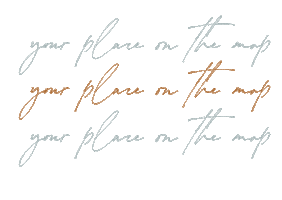 your place on the map
your place on the map
your place on the map